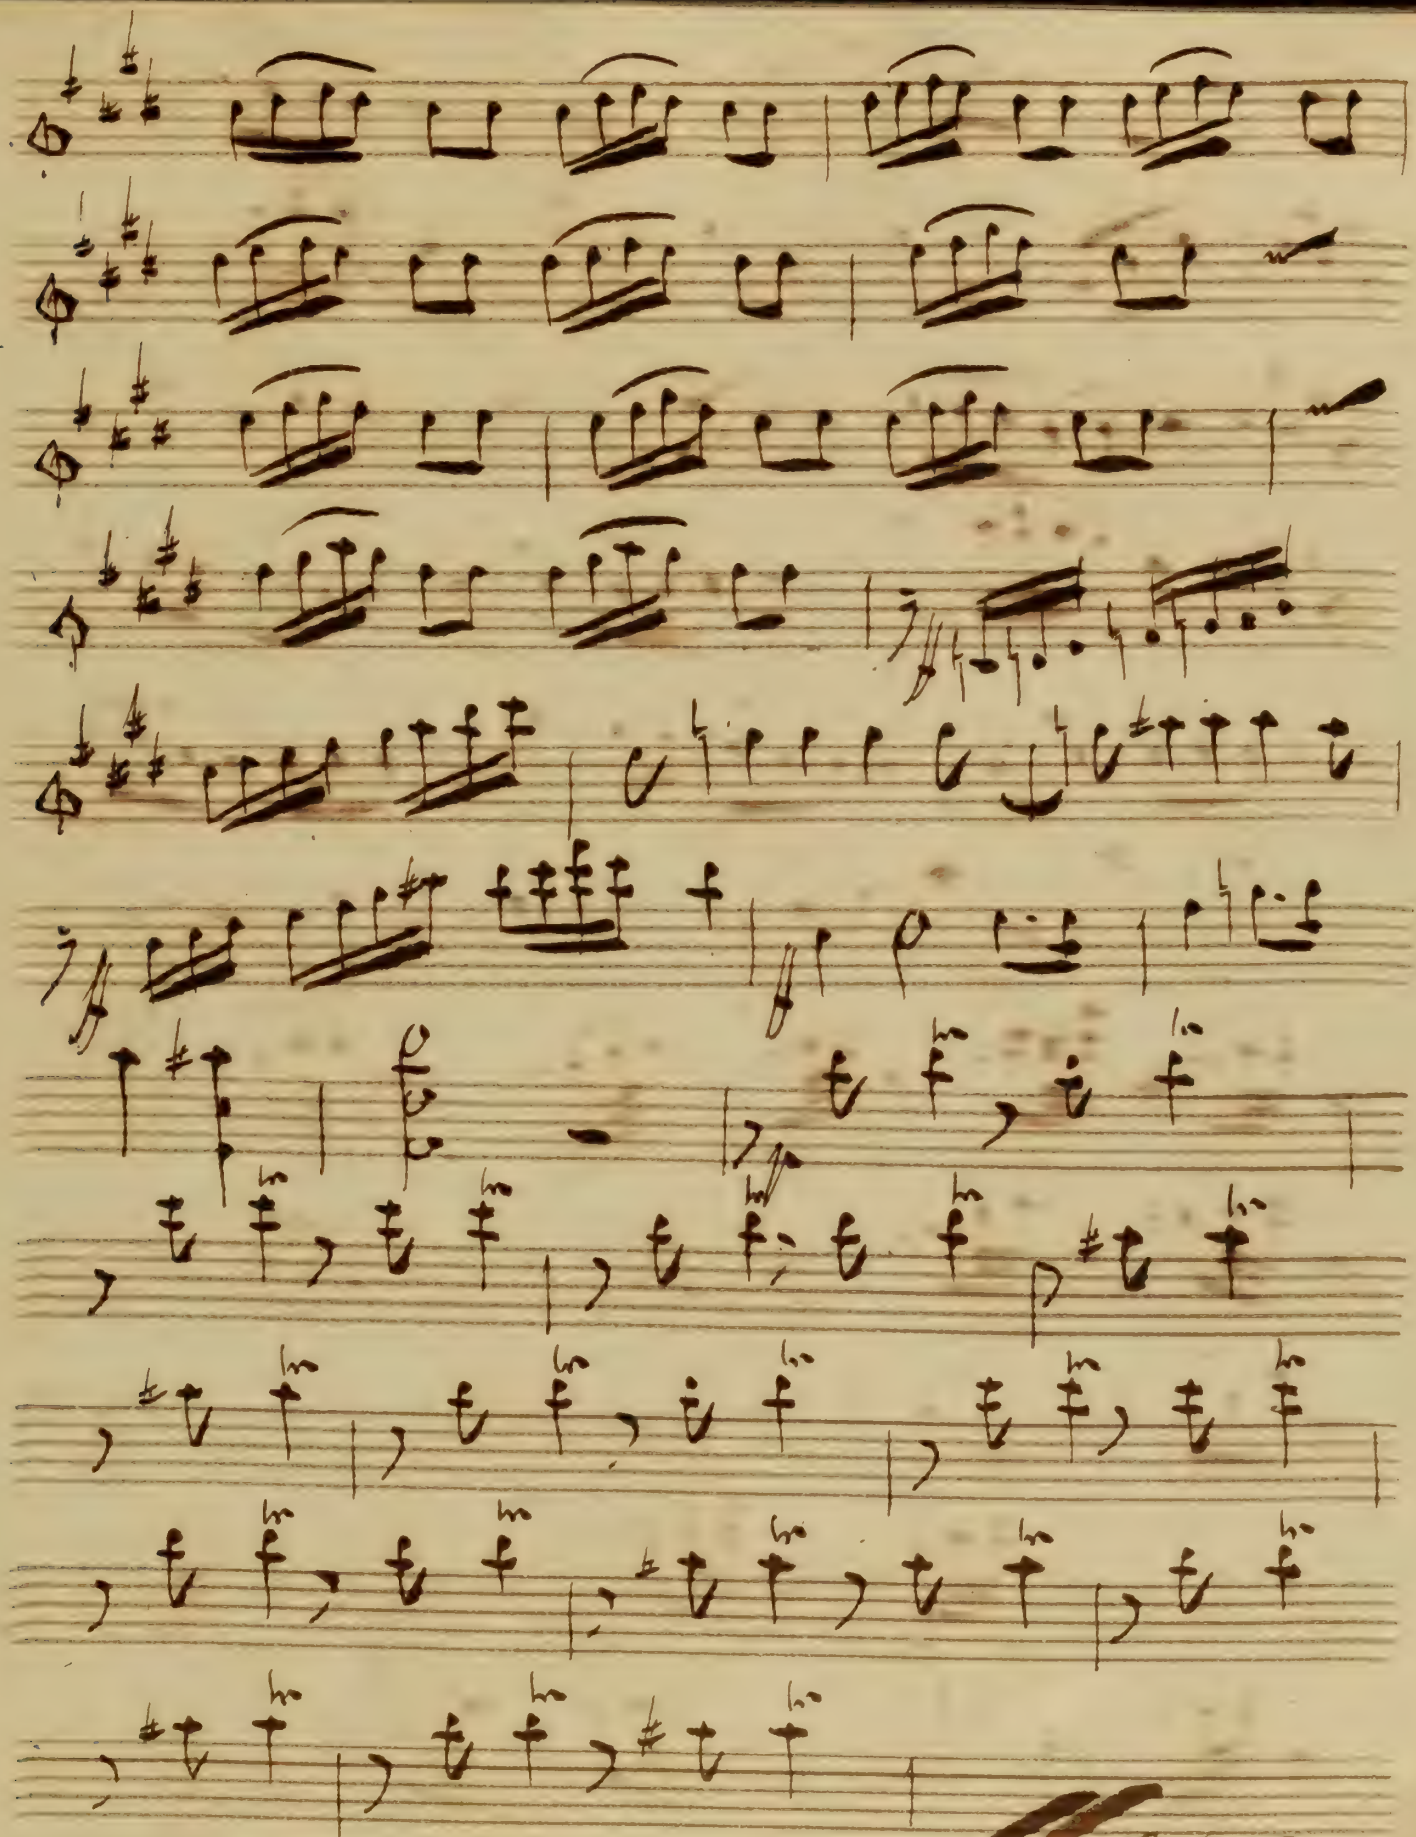 ff
ff ff
p
tr tr
tr tr tr tr tr
tr tr tr tr tr
tr tr tr tr tr
tr tr tr